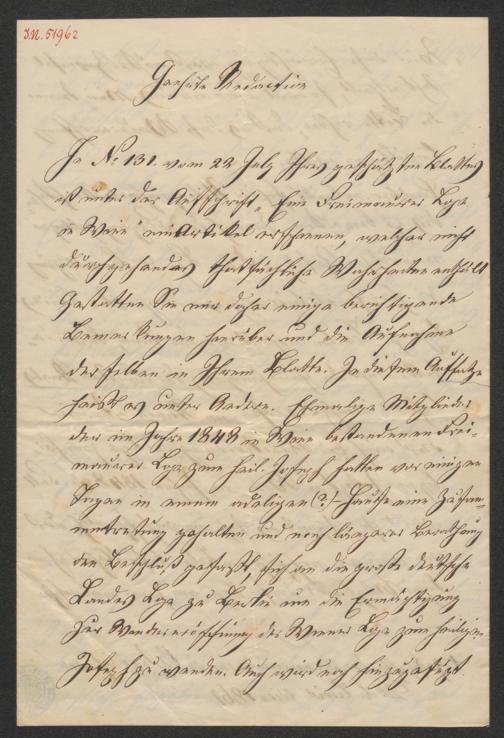 J.N. 51962
Geehrte Redaction
In No 131. vom 22 July Ihres geschätzten Blattes
ist unter der Aufschrift „Eine Freimaurer Loge
in Wien" ein Artikel erschienen, welcher nicht
durchgehendes thatsächliche Wahrheiten enthält
Gestatten Sie mir daher einige berichtigende
Bemerkungen hierüber und die Aufnahme
derselben in Ihrem Blatte. In diesem Aufsatze
heißt es unter Andern. Ehmalige Mitglieder
der im Jahre 1848 in Wien bestandenen Frei-
maurer Loge zum heil. Joseph hatten vor einigen
Tagen in einem adeligen (?) Hause eine Zusam-
mentretung gehalten und nach längerer Berathung
den Beschluß gefaßt, sich an die große deutsche
Landes Loge zu Berlin um die Ermächtigung
zur Wiedereröffnung der Wiener Loge zum heiligen
Joseph zu wenden. Auch wird noch hinzugefügt.